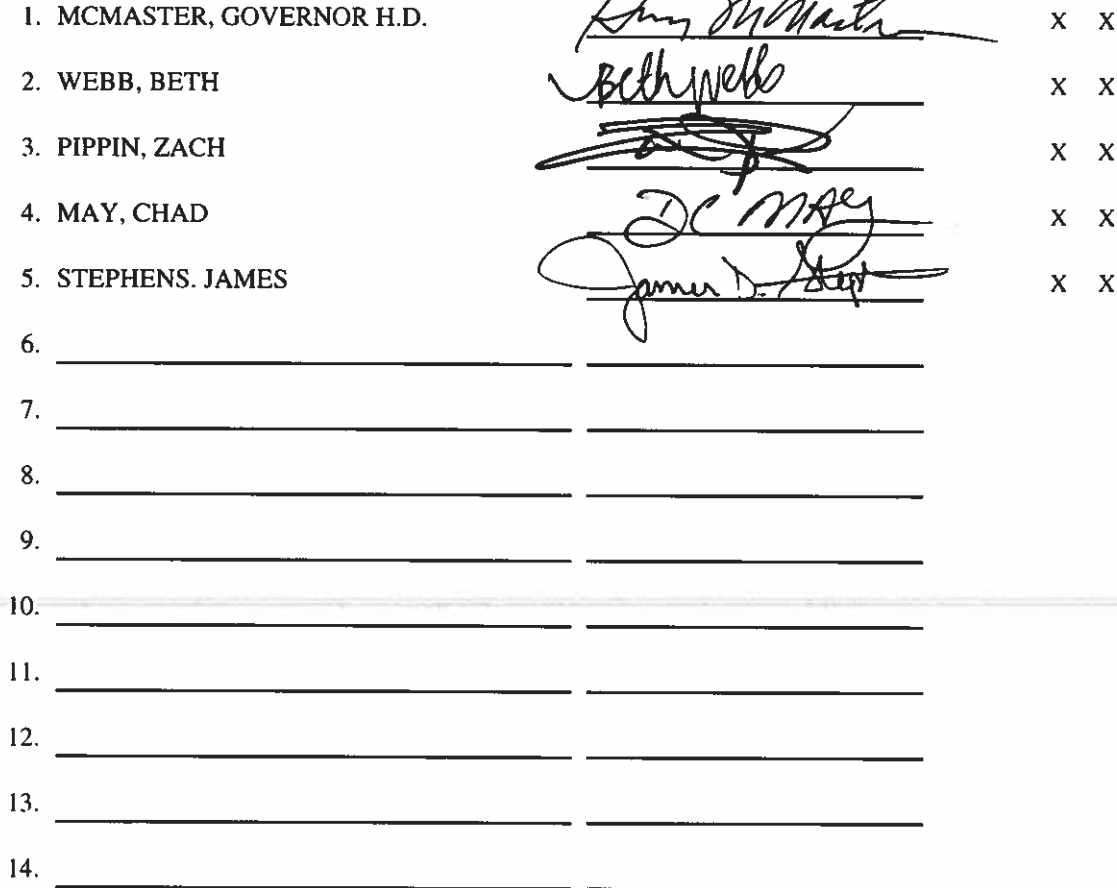 1. MCMASTER, GOVERNOR H.D. Henry McMaster X X
2. WEBB, BETH Beth Webb X X
3. PIPPIN, ZACH X X
4. MAY, CHAD DC MAY X X
5. STEPHENS. JAMES James D. X X
6.
7.
8.
9.
10.
11.
12.
13.
14.